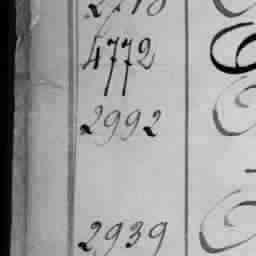 4772
2992
2939